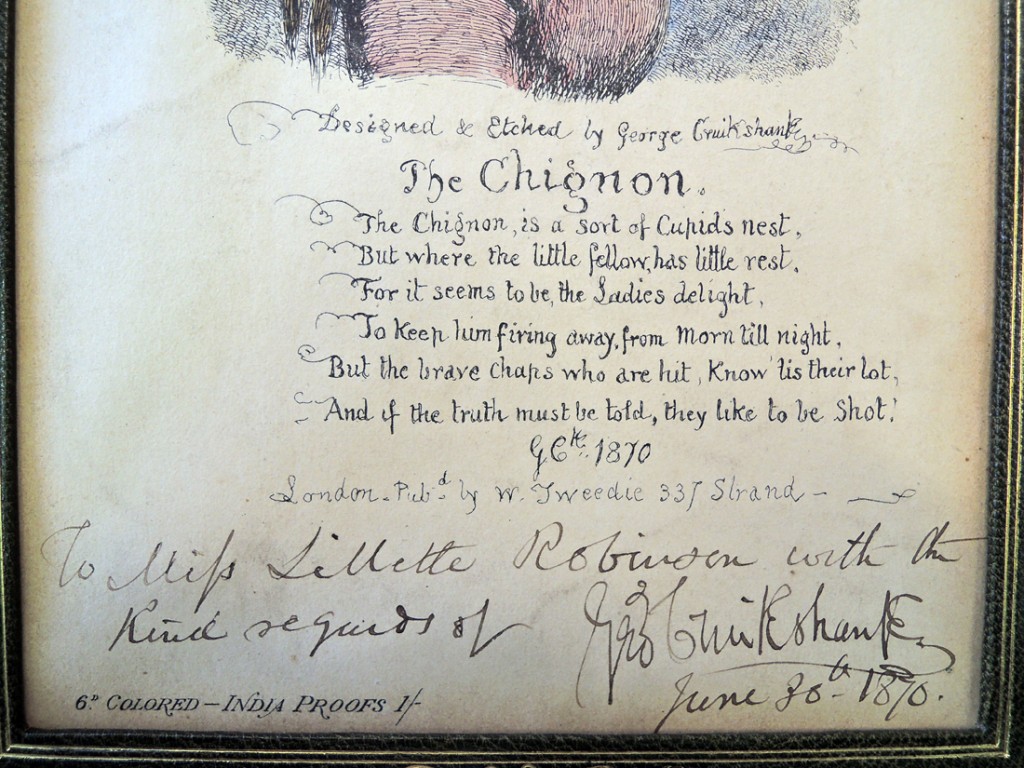 Designed & Etched by George Cruikshank
The Chignon.
The Chignon, is a sort of Cupids nest,
But where the little fellow, has little rest.
For it seems to be, the Ladies delight,
To Keep him firing away, from Morn till night,
But the brave Chaps who are hit, Know 'tis their lot,
And if the truth must be told, they like to be Shot!
G Ck. 1870
London - Pubd. by W. Tweedie 337 Strand -
To Miss Lillette Robinson with the
Kind regards of Geo Cruikshank
June 30th 1870.
6D COLORED – INDIA PROOFS 1/-